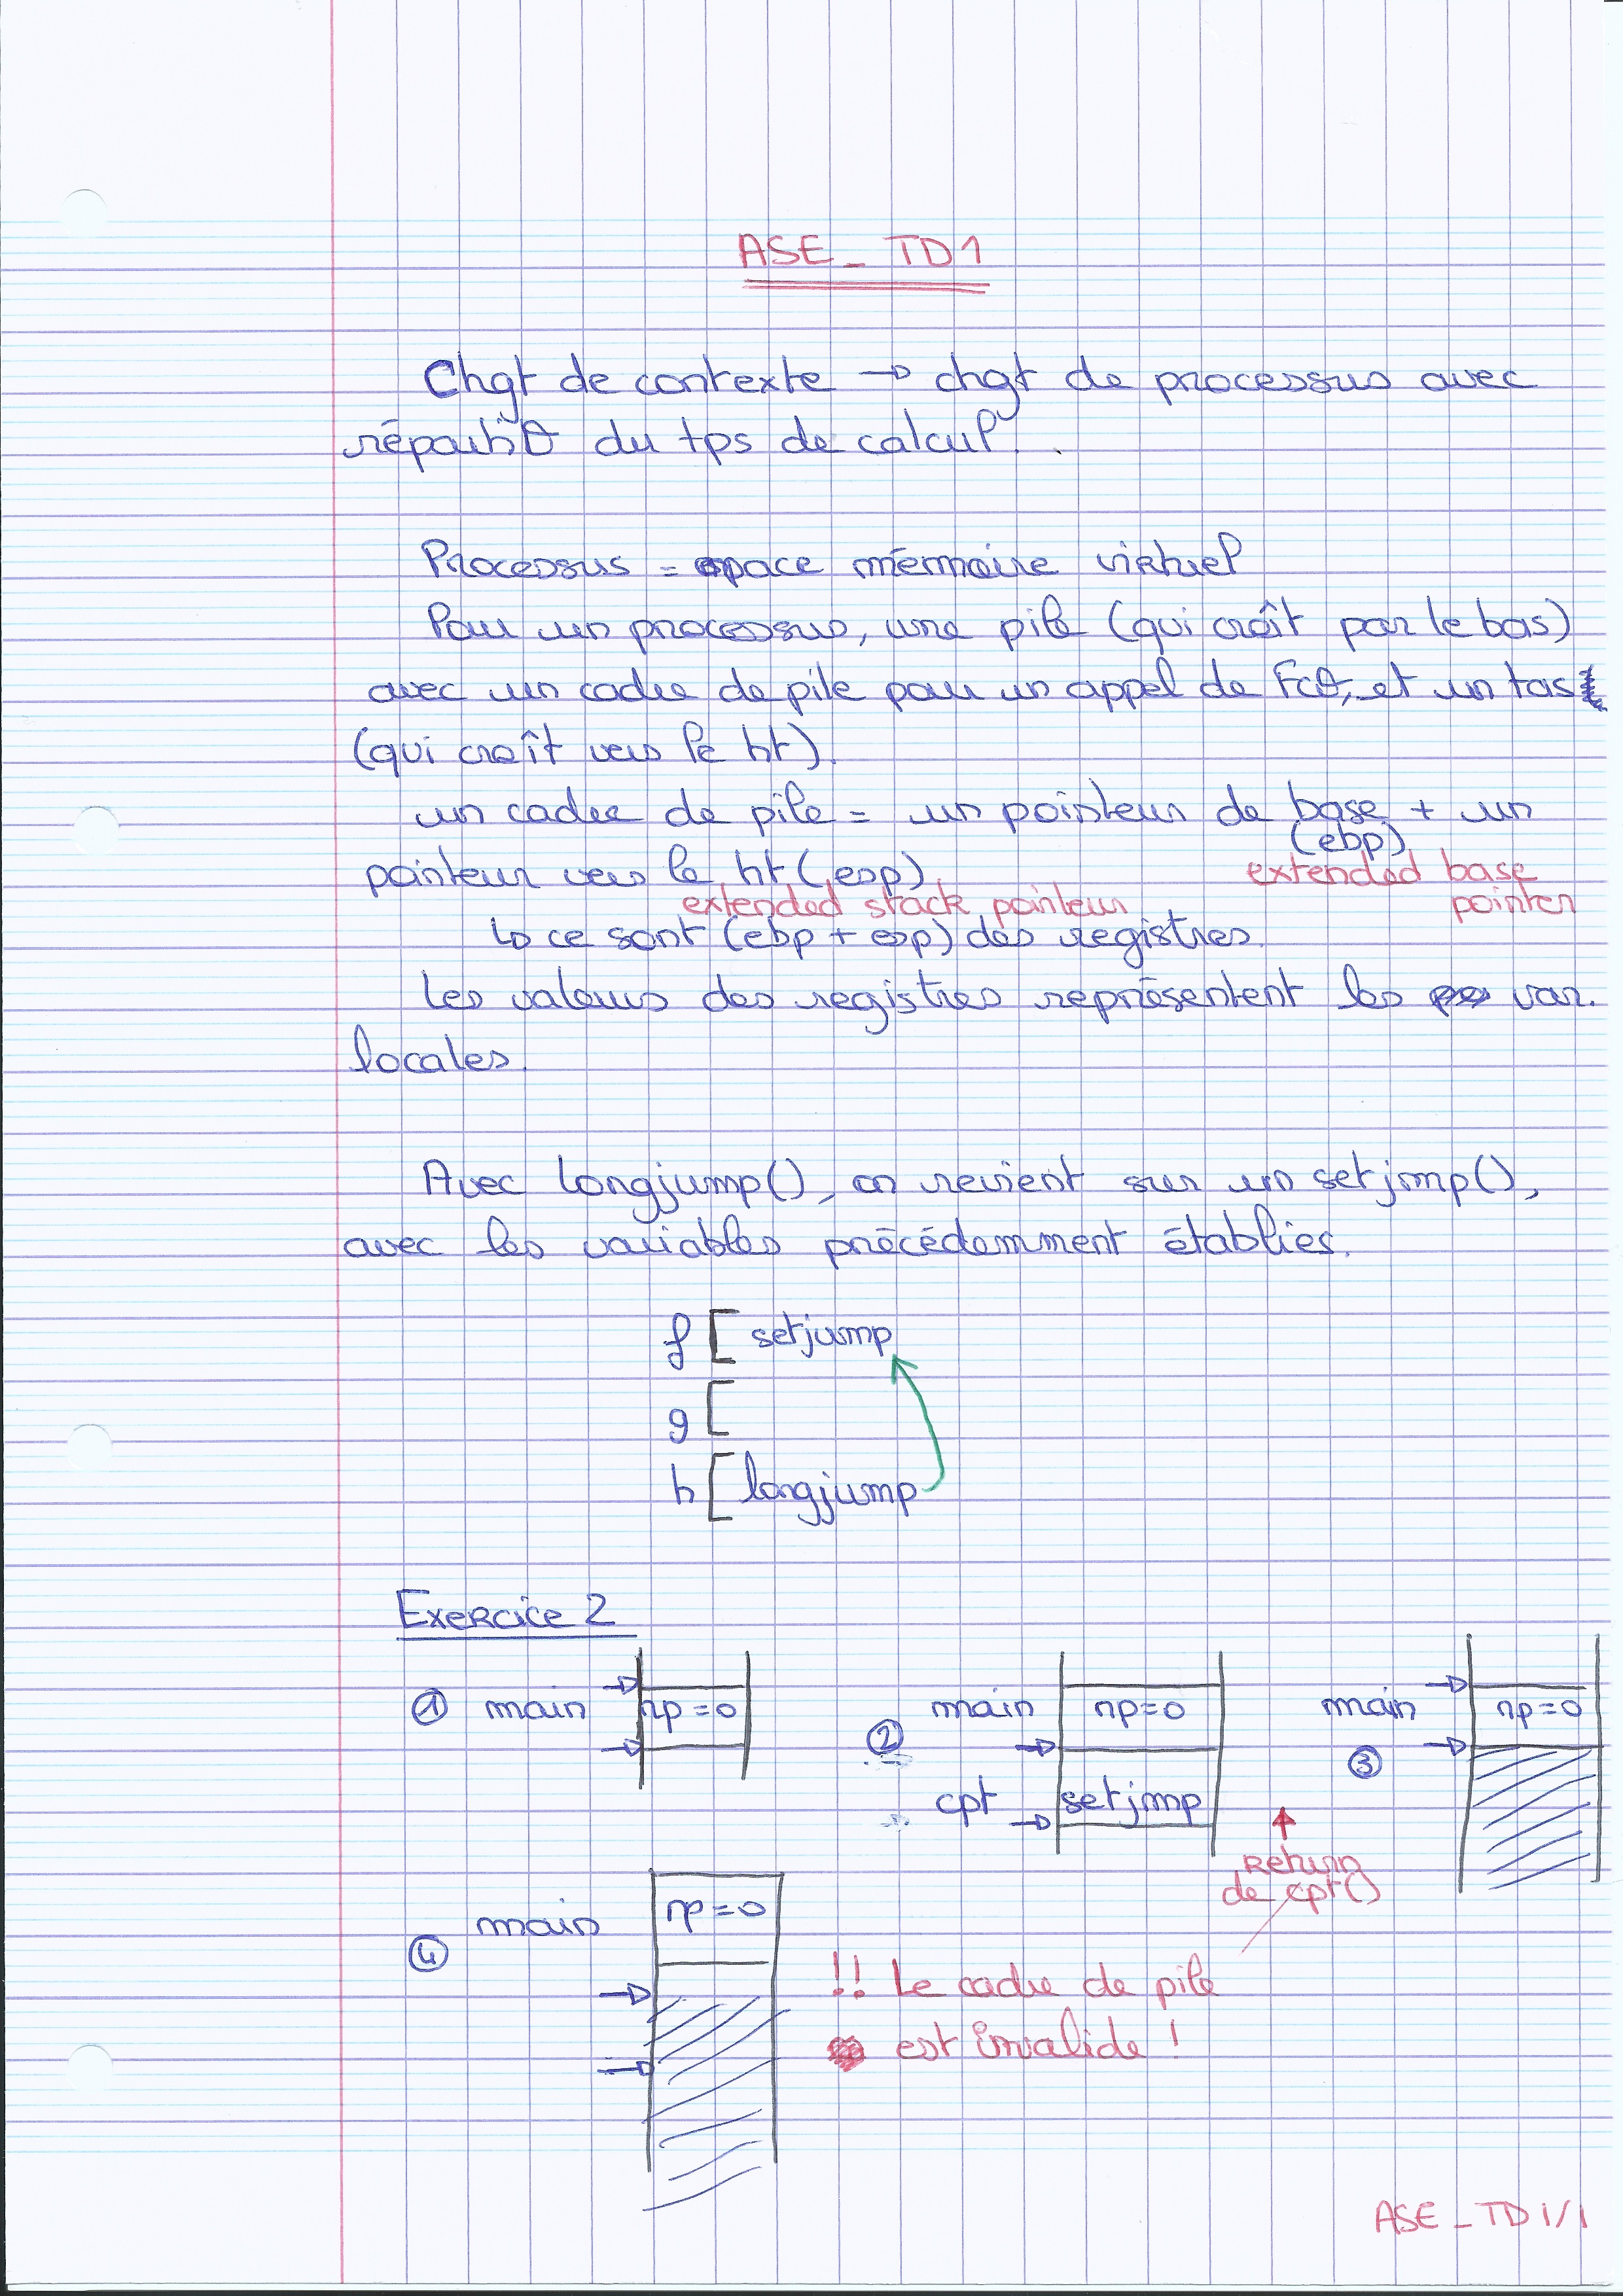 ASE_TD1
Chgt de contexte → chgt de processus avec
répartiθ du tps de calcul.
Processus = espace mémoire virtuel
Pour un processus, une pile (qui croît par le bas)
avec un cadre de pile pour un appel de Fcθ, et un tas
(qui croît vers le ht).
un cadre de pile = un pointeur de base + un
(ebp)
pointeur vers le ht (esp)
extended base
pointer
extended stack pointeur
↳ ce sont (ebp + esp) des registres.
Les valeurs des registres représentent les var.
locales.
Avec longjump(), on revient sur un setjmp(),
avec les variables précédemment établies.
f [ setjump
g [
h [ longjump
Exercice 2
① main np=0
② main np=0
cpt setjmp
③ main np=0
return
de cpt()
④ main np=0
!! Le cadre de pile
est invalide !
ASE_TD1/1